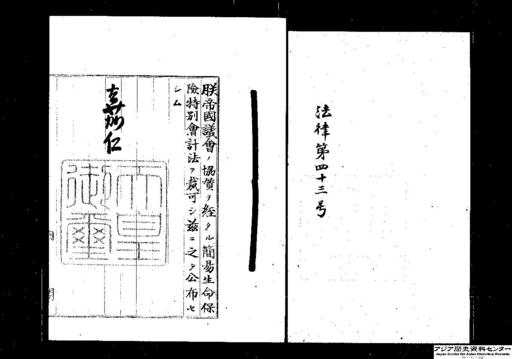 法律第四十三号
朕帝國議會ノ協賛ヲ經タル簡易生命保
険特別會計法ヲ裁可シ茲ニ之ヲ公布セ
シム
嘉仁
天皇
御璽
アジア歴史資料センター
Japan Center for Asian Historical Records